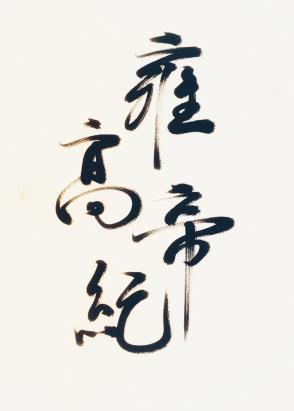 雍帝
高紀